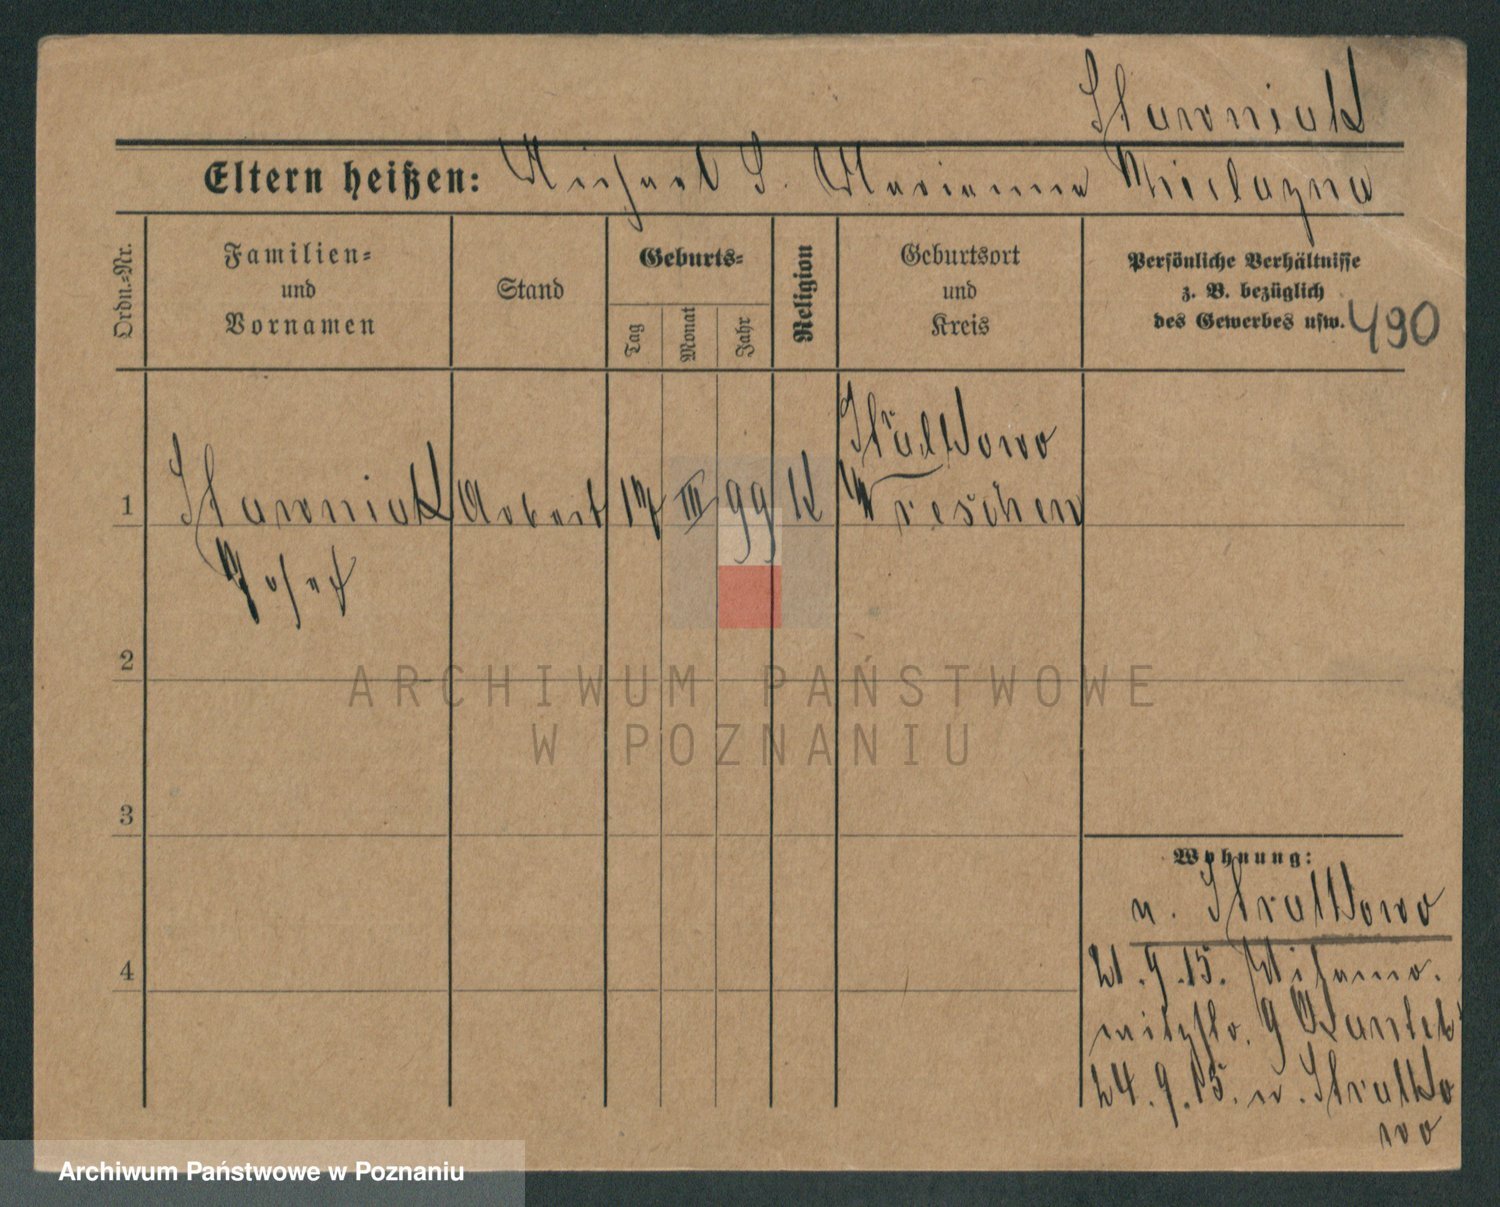 Stawniak
Eltern heißen: Michael S. Marianna
Ordn.-Nr.
Familien-
und
Vornamen
Stand
Geburts-
Tag
Monat
Jahr
Religion
Geburtsort
und
Kreis
Persönliche Verhältnisse
z. B. bezüglich
des Gewerbes usw. 490
Wreschen
1 Stawniak Arbeit 17 III 99 K
Josef
2
3
4
Wohnung:
n.
21.9.15.
24.9.15. n.
wo
ARCHIWUM PAŃSTWOWE
W POZNANIU
Archiwum Państwowe w Poznaniu